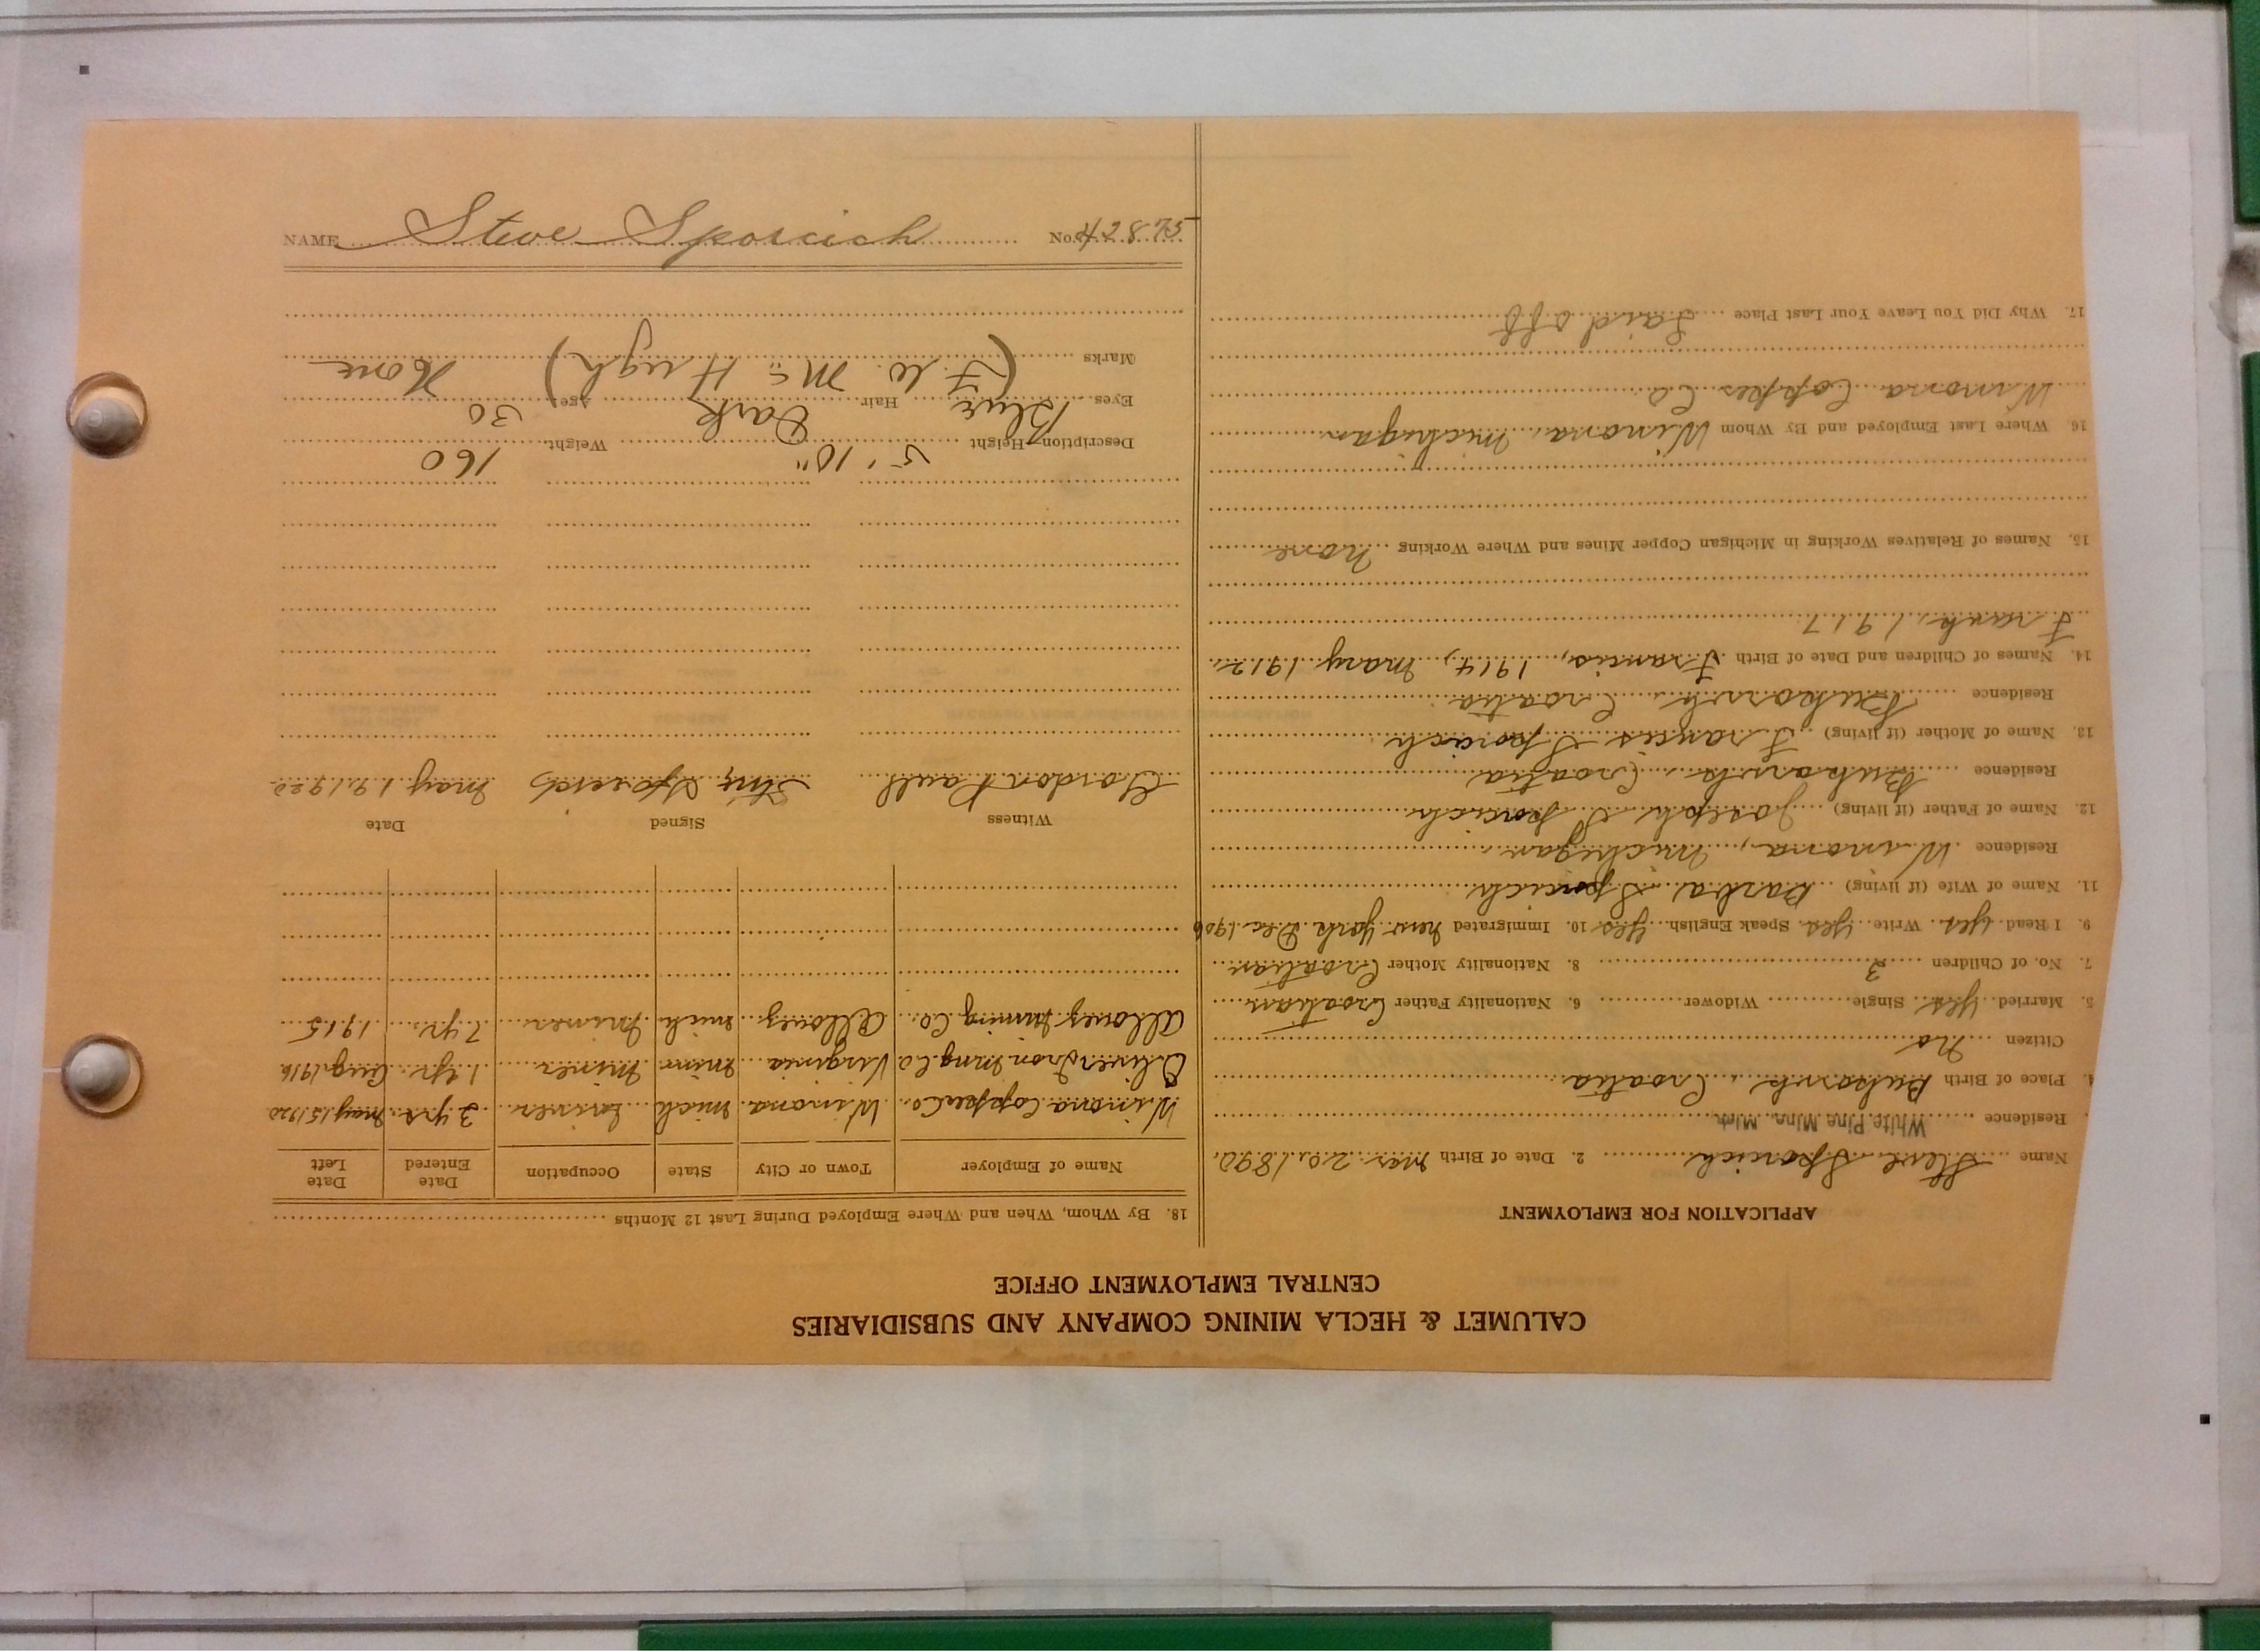 CALUMET & HECLA MINING COMPANY AND SUBSIDIARIES
CENTRAL EMPLOYMENT OFFICE
APPLICATION FOR EMPLOYMENT
Name Steve Sporcich 2. Date of Birth Mar. 20, 1890.
Residence White Pine Mine, Mich.
4. Place of Birth Croatia
Citizen No
5. Married Yes Single Widower 6. Nationality Father Croatian
7. No. of Children 3 8. Nationality Mother Croatian
9. I Read Yes Write Yes Speak English Yes 10. Immigrated New York Dec. 1906
11. Name of Wife (if living) Barba Sporcich
Residence Winona, Michigan
12. Name of Father (if living) Joseph Sporcich
Residence Croatia
13. Name of Mother (if living) Frances Sporcich
Residence Croatia
14. Names of Children and Date of Birth Francis, 1914, Mary 1912,
Frank, 1917
15. Names of Relatives Working in Michigan Copper Mines and Where Working None
16. Where Last Employed and By Whom Winona, Michigan
Winona Copper Co
17. Why Did You Leave Your Last Place Laid off
18. By Whom, When and Where Employed During Last 12 Months
Name of Employer Town or City State Occupation Date Entered Date Left
Winona Copper Co. Winona Mich 3 yrs May 15, 1920
Oliver Iron Ming Co Virginia Minn Miner 1 yr. Aug. 1916
Allouez Mining Co. Allouez Mich Miner 7 yr. 1915
Witness Signed Date
Gordon Paull May 19, 1920
Description—Height 5' 10" Weight 160
Eyes Blue Hair Dark Age 30
Marks (F. W. Mc Hugh) None
NAME Steve Sporcich No. 42875